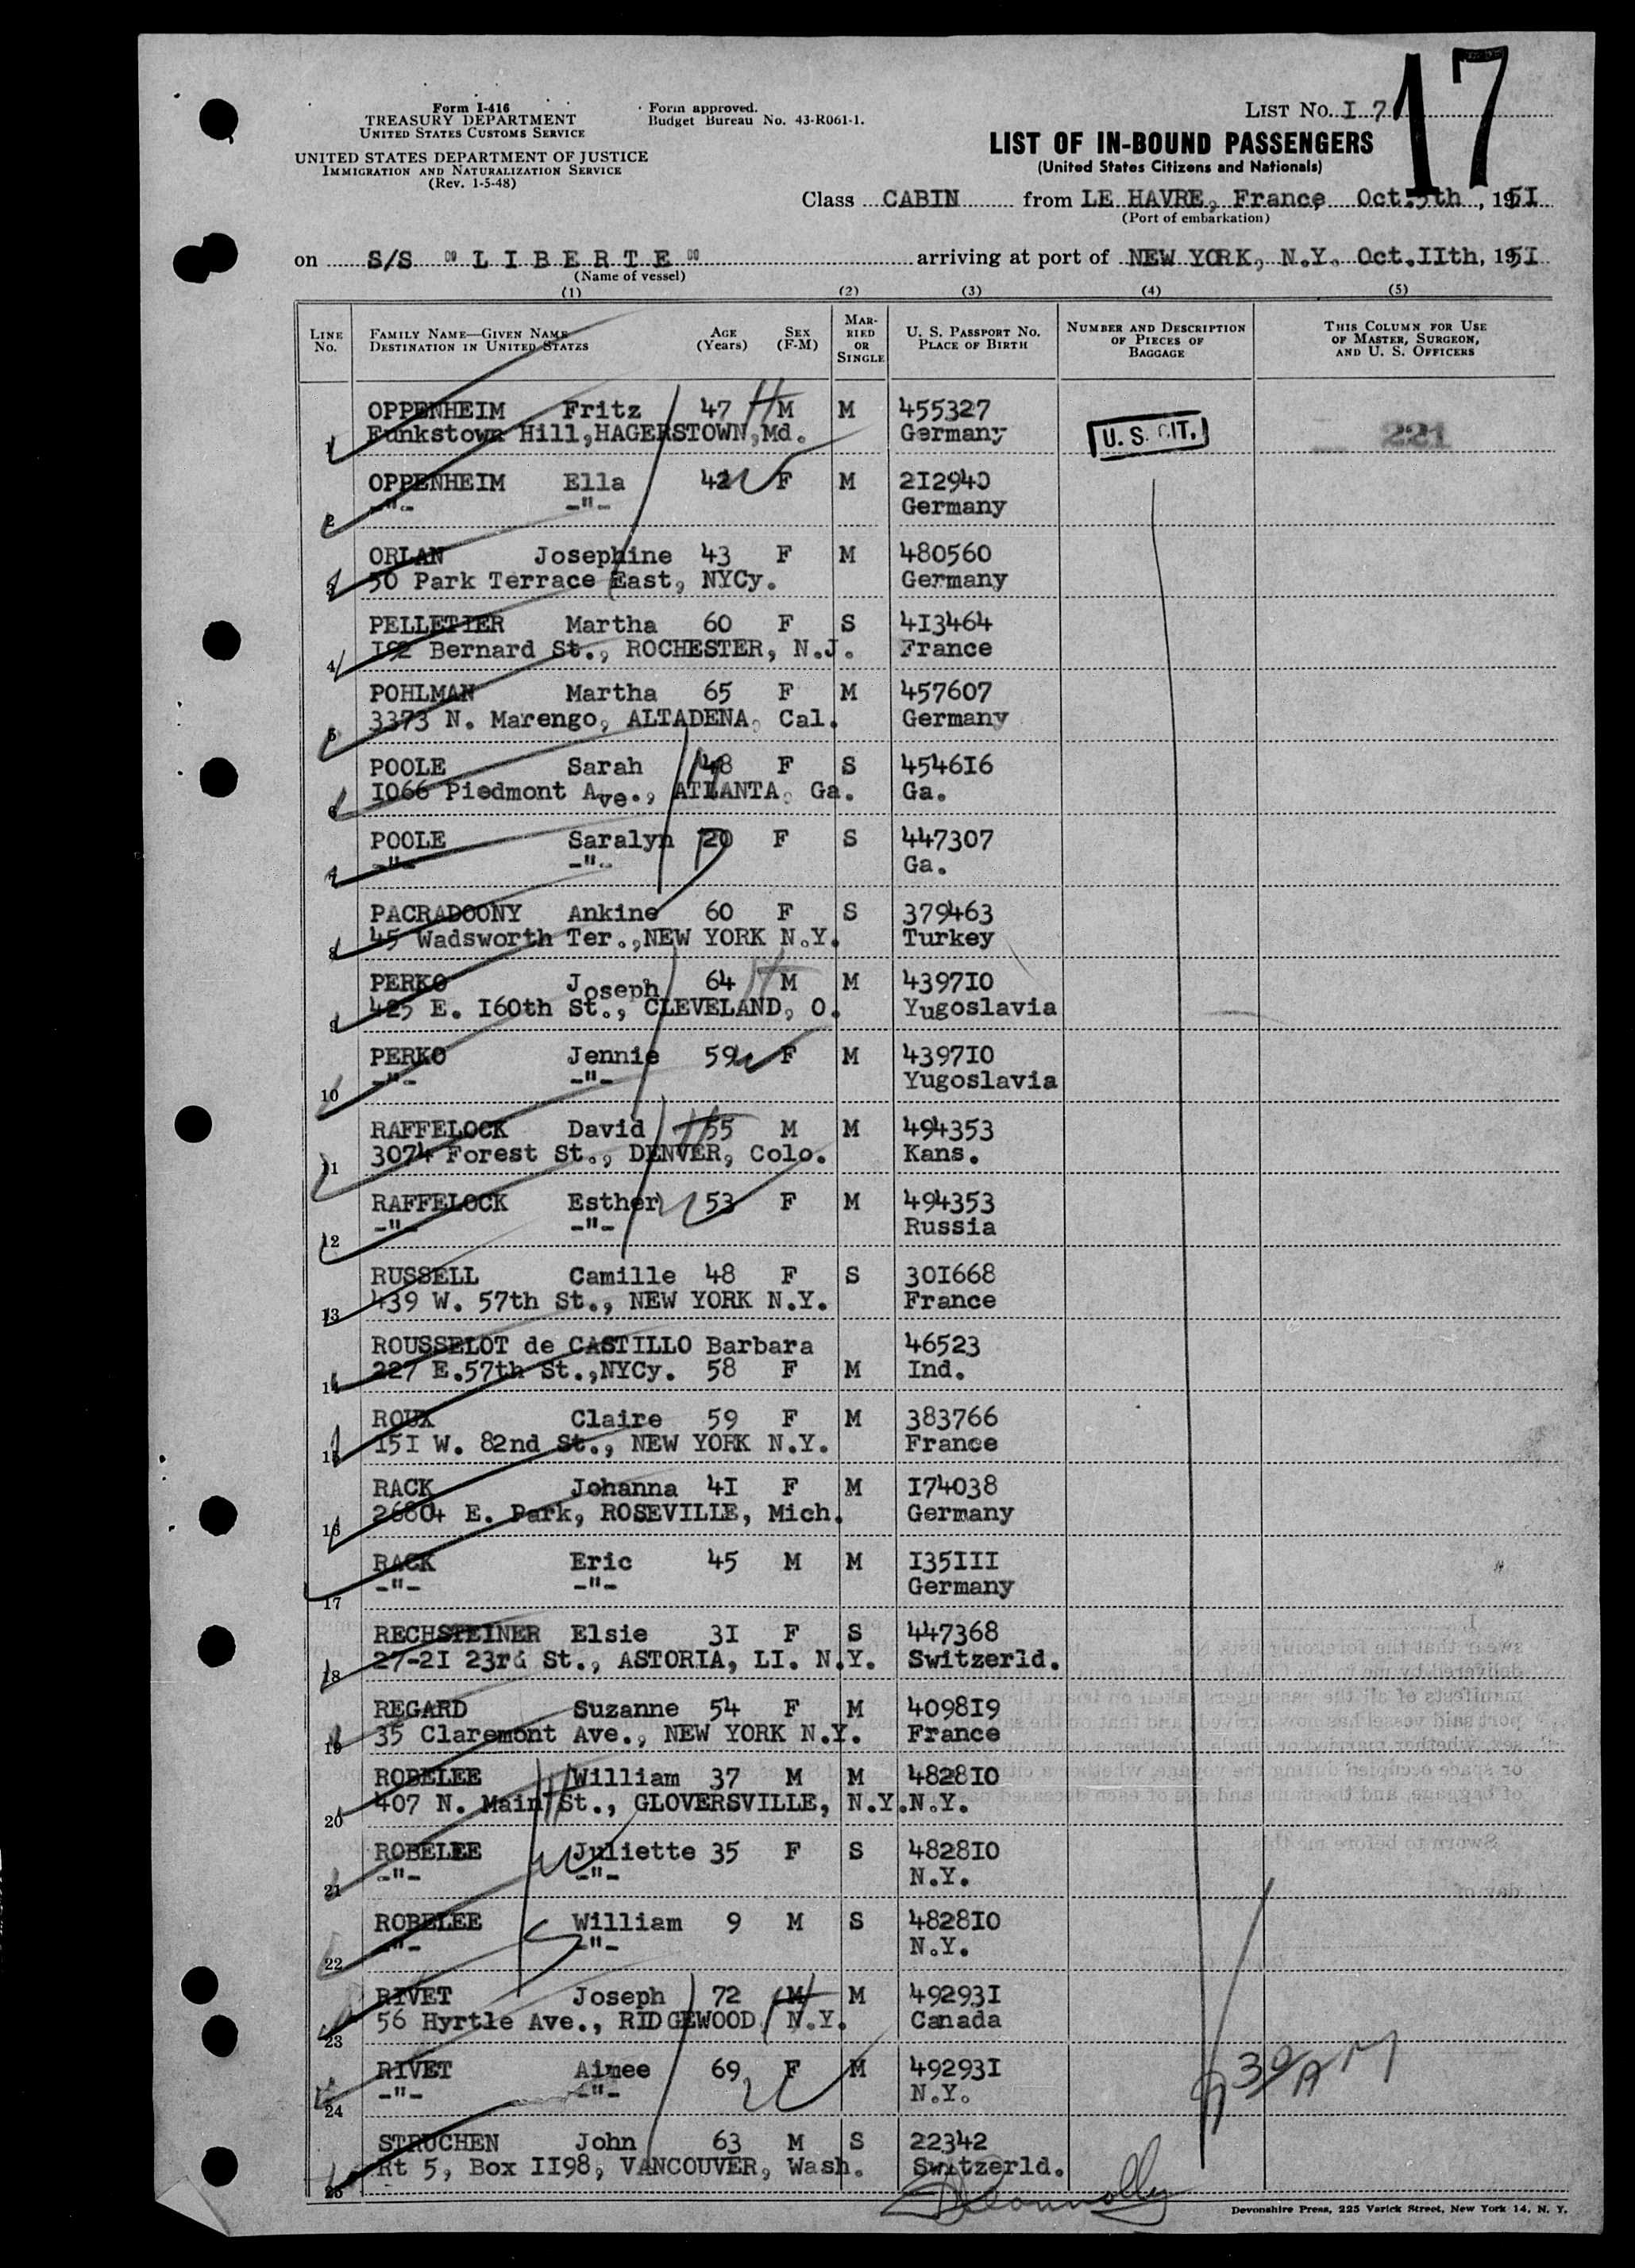 17
Form I-416
TREASURY DEPARTMENT
UNITED STATES CUSTOMS SERVICE
UNITED STATES DEPARTMENT OF JUSTICE
IMMIGRATION AND NATURALIZATION SERVICE
(Rev. 1-5-48)
Form approved.
Budget Bureau No. 43-R061-1.
LIST No. I 7
LIST OF IN-BOUND PASSENGERS
(United States Citizens and Nationals)
Class CABIN from LE HAVRE, France Oct.5th, 1951
(Port of embarkation)
on S/S "L I B E R T E" arriving at port of NEW YORK, N.Y. Oct.IIth, 1951
(Name of vessel)
(1) (2) (3) (4) (5)
LINE No. FAMILY NAME—GIVEN NAME DESTINATION IN UNITED STATES AGE (Years) SEX (F-M) MARRIED OR SINGLE U. S. PASSPORT NO. PLACE OF BIRTH NUMBER AND DESCRIPTION OF PIECES OF BAGGAGE THIS COLUMN FOR USE OF MASTER, SURGEON, AND U. S. OFFICERS
OPPENHEIM Fritz 47 H M M 455327
1 Funkstown Hill,HAGERSTOWN,Md. Germany U. S. CIT. 221
OPPENHEIM Ella 42 W F M 212940
2 -"- -"- Germany
ORLAN Josephine 43 F M 480560
3 50 Park Terrace East, NYCy. Germany
PELLETIER Martha 60 F S 413464
4 192 Bernard St., ROCHESTER, N.J. France
POHLMAN Martha 65 F M 457607
5 3373 N. Marengo, ALTADENA, Cal. Germany
POOLE Sarah 48 F S 454616
6 1066 Piedmont Ave., ATLANTA, Ga. Ga.
POOLE Saralyn 20 F S 447307
7 -"- -"- Ga.
PACRADOONY Ankine 60 F S 379463
8 45 Wadsworth Ter.,NEW YORK N.Y. Turkey
PERKO Joseph 64 H M M 439710
9 425 E. 160th St., CLEVELAND, O. Yugoslavia
PERKO Jennie 59 W F M 439710
10 -"- -"- Yugoslavia
RAFFELOCK David H 55 M M 494353
11 3074 Forest St., DENVER, Colo. Kans.
RAFFELOCK Esther W 53 F M 494353
12 -"- -"- Russia
RUSSELL Camille 48 F S 301668
13 439 W. 57th St., NEW YORK N.Y. France
ROUSSELOT de CASTILLO Barbara 46523
14 227 E.57th St.,NYCy. 58 F M Ind.
ROUX Claire 59 F M 383766
15 151 W. 82nd St., NEW YORK N.Y. France
RACK Johanna 41 F M 174038
16 26804 E. Park, ROSEVILLE, Mich. Germany
RACK Eric 45 M M 135111
17 -"- -"- Germany
RECHSTEINER Elsie 31 F S 447368
18 27-21 23rd St., ASTORIA, LI. N.Y. Switzerld.
REGARD Suzanne 54 F M 409819
19 35 Claremont Ave., NEW YORK N.Y. France
ROBELEE William 37 M M 482810
20 407 N. Main St., GLOVERSVILLE, N.Y. N.Y.
ROBELEE Juliette 35 F S 482810
21 -"- -"- N.Y.
ROBELEE William 9 M S 482810
22 -"- -"- N.Y.
RIVET Joseph 72 M M 492931
23 56 Hyrtle Ave., RIDGEWOOD, N.Y. Canada
RIVET Aimee 69 F M 492931
24 -"- -"- N.Y.
STRUCHEN John 63 M S 22342
25 Rt 5, Box 1198, VANCOUVER, Wash. Switzerld.
Devonshire Press, 225 Varick Street, New York 14, N. Y.